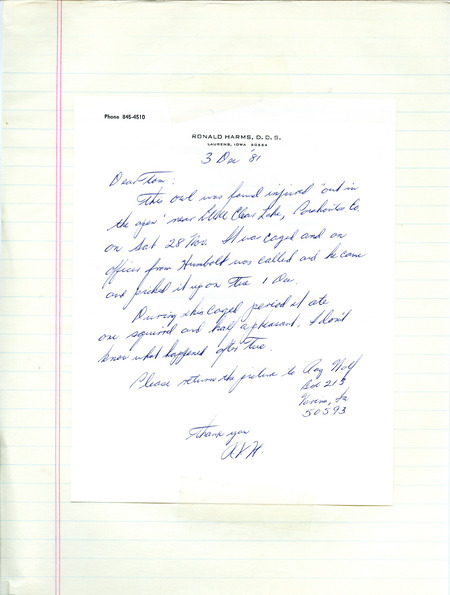 Phone 845-4510
RONALD HARMS, D. D. S.
LAURENS, IOWA 50554
3 Dec '81
Dear Tom:
This owl was found injured "out in
the open" near Little Clear Lake, Pocahontas Co.
on Sat 28 Nov. It was caged and an
officer from Humbolt was called and he came
and picked it up on Tue 1 Dec.
During this caged period it ate
one squirrel and half a pheasant. I don't
know what happened after Tue.
Please return the picture to Ray Wolf
Box 215
Varina, Ia
50593
Thank you